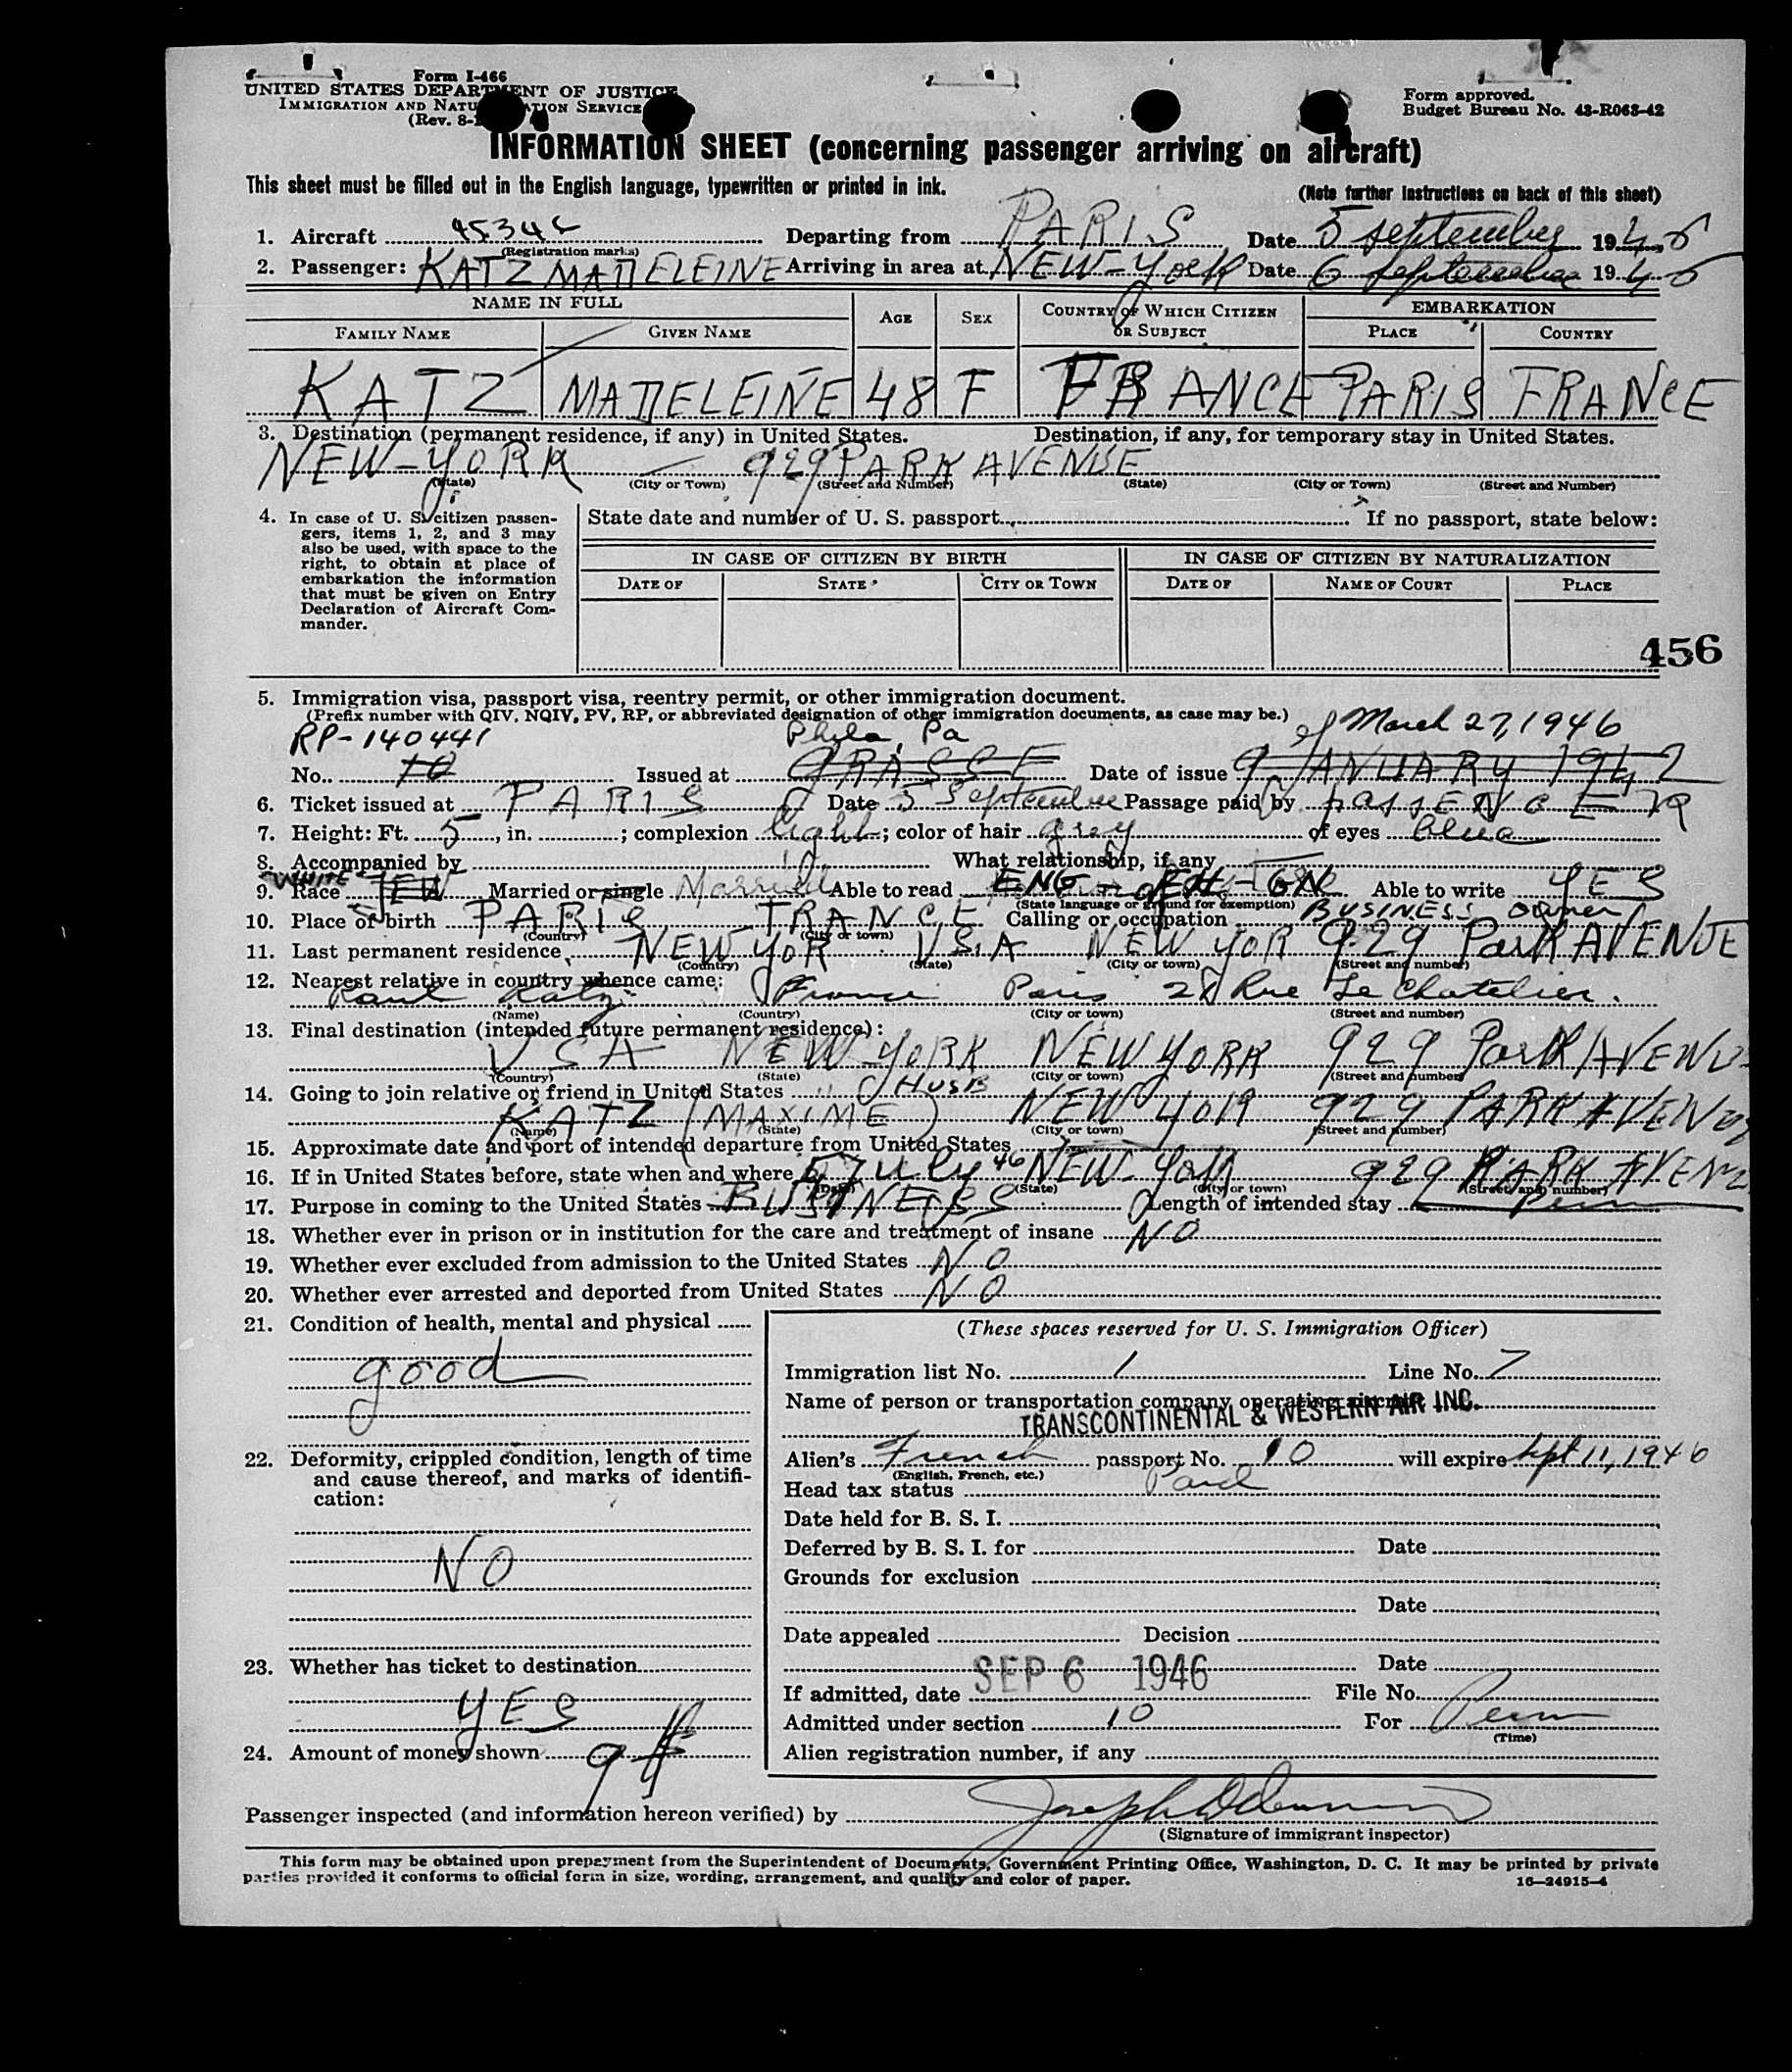 Form I-466
UNITED STATES DEPARTMENT OF JUSTICE
IMMIGRATION AND NATU TION SERVICE
(Rev. 8-
Form approved.
Budget Bureau No. 43-R063-42
INFORMATION SHEET (concerning passenger arriving on aircraft)
This sheet must be filled out in the English language, typewritten or printed in ink. (Note further instructions on back of this sheet)
1. Aircraft 45346 Departing from PARIS Date 5 september 1946
(Registration marks)
2. Passenger: KATZ MADELEINE Arriving in area at NEW-York Date 6 September 1946
NAME IN FULL AGE SEX COUNTRY OF WHICH CITIZEN OR SUBJECT EMBARKATION
FAMILY NAME GIVEN NAME PLACE COUNTRY
KATZ MADELEINE 48 F FRANCE PARIS FRANCE
3. Destination (permanent residence, if any) in United States. Destination, if any, for temporary stay in United States.
NEW-YORK 929 PARK AVENUE
(State) (City or Town) (Street and Number) (State) (City or Town) (Street and Number)
4. In case of U. S. citizen passengers, items 1, 2, and 3 may also be used, with space to the right, to obtain at place of embarkation the information that must be given on Entry Declaration of Aircraft Commander.
State date and number of U. S. passport If no passport, state below:
IN CASE OF CITIZEN BY BIRTH IN CASE OF CITIZEN BY NATURALIZATION
DATE OF STATE CITY OR TOWN DATE OF NAME OF COURT PLACE
456
5. Immigration visa, passport visa, reentry permit, or other immigration document.
(Prefix number with QIV, NQIV, PV, RP, or abbreviated designation of other immigration documents, as case may be.)
RP-140441 Phila, Pa March 27, 1946
No. 10 Issued at GRASSE Date of issue 9 JANUARY 1942
6. Ticket issued at PARIS Date 5 September Passage paid by passENGER
7. Height: Ft. 5, in. ; complexion light; color of hair grey of eyes blue
8. Accompanied by What relationship, if any
WHITE
9. Race JEW Married or single Married Able to read ENG - FH - GN Able to write YES
(State language or ground for exemption)
BUSINESS owner
10. Place of birth PARIS FRANCE Calling or occupation
(Country) (City or town)
11. Last permanent residence NEW YOR U.S.A NEW YOR 929 Park AVENUE
(Country) (State) (City or town) (Street and number)
12. Nearest relative in country whence came:
Katz France Paris Rue Le Chatelier.
(Name) (Country) (City or town) (Street and number)
13. Final destination (intended future permanent residence):
USA NEW-YORK NEW YORK 929 Park AVENU
(Country) (State) (City or town) (Street and number)
14. Going to join relative or friend in United States HUSB
KATZ (MAXIME) NEW YOR 929 PARK AVENUE
(Name) (State) (City or town) (Street and number)
15. Approximate date and port of intended departure from United States
16. If in United States before, state when and where July 46 NEW-York 929 PARK AVENU
(Date) (State) (City or town) (Street and number)
17. Purpose in coming to the United States BUSINESS Length of intended stay Perm
18. Whether ever in prison or in institution for the care and treatment of insane NO
19. Whether ever excluded from admission to the United States NO
20. Whether ever arrested and deported from United States NO
21. Condition of health, mental and physical
good
22. Deformity, crippled condition, length of time and cause thereof, and marks of identification:
NO
23. Whether has ticket to destination
YES
24. Amount of money shown 9 $
(These spaces reserved for U. S. Immigration Officer)
Immigration list No. 1 Line No. 7
Name of person or transportation company operating aircraft
TRANSCONTINENTAL & WESTERN AIR INC.
Alien's French passport No. 10 will expire Sept 11, 1946
(English, French, etc.)
Head tax status Paid
Date held for B. S. I.
Deferred by B. S. I. for Date
Grounds for exclusion
Date
Date appealed Decision
Date
If admitted, date SEP 6 1946 File No.
Admitted under section 10 For Perm
(Time)
Alien registration number, if any
Passenger inspected (and information hereon verified) by
(Signature of immigrant inspector)
This form may be obtained upon prepayment from the Superintendent of Documents, Government Printing Office, Washington, D. C. It may be printed by private
parties provided it conforms to official form in size, wording, arrangement, and quality and color of paper. 16—24915-4